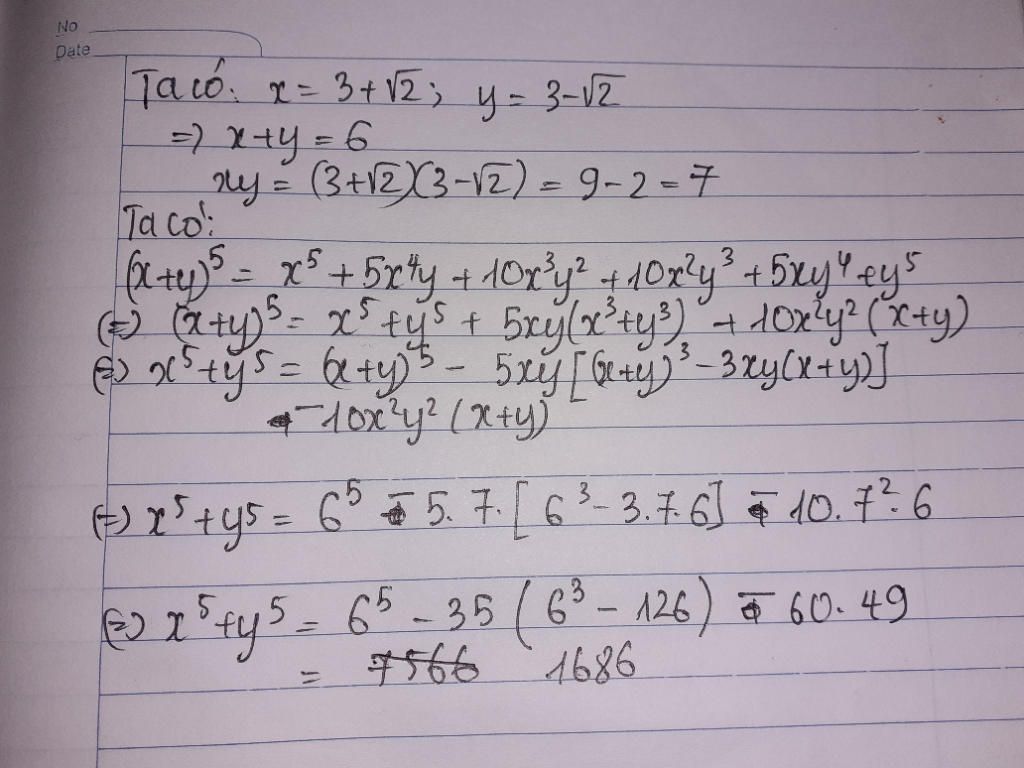 No
Date
Ta có: x = 3+√2; y = 3-√2
=> x+y = 6
xy = (3+√2)(3-√2) = 9-2 = 7
Ta có:
(x+y)⁵ = x⁵ + 5x⁴y + 10x³y² + 10x²y³ + 5xy⁴ + y⁵
(=) (x+y)⁵ = x⁵ + y⁵ + 5xy(x³+y³) + 10x²y² (x+y)
(=) x⁵+y⁵ = (x+y)⁵ - 5xy[(x+y)³ - 3xy(x+y)]
- 10x²y² (x+y)
(=) x⁵+y⁵ = 6⁵ - 5.7.[6³ - 3.7.6] - 10.7².6
(=) x⁵+y⁵ = 6⁵ - 35 (6³ - 126) - 60.49
= 7566 1686